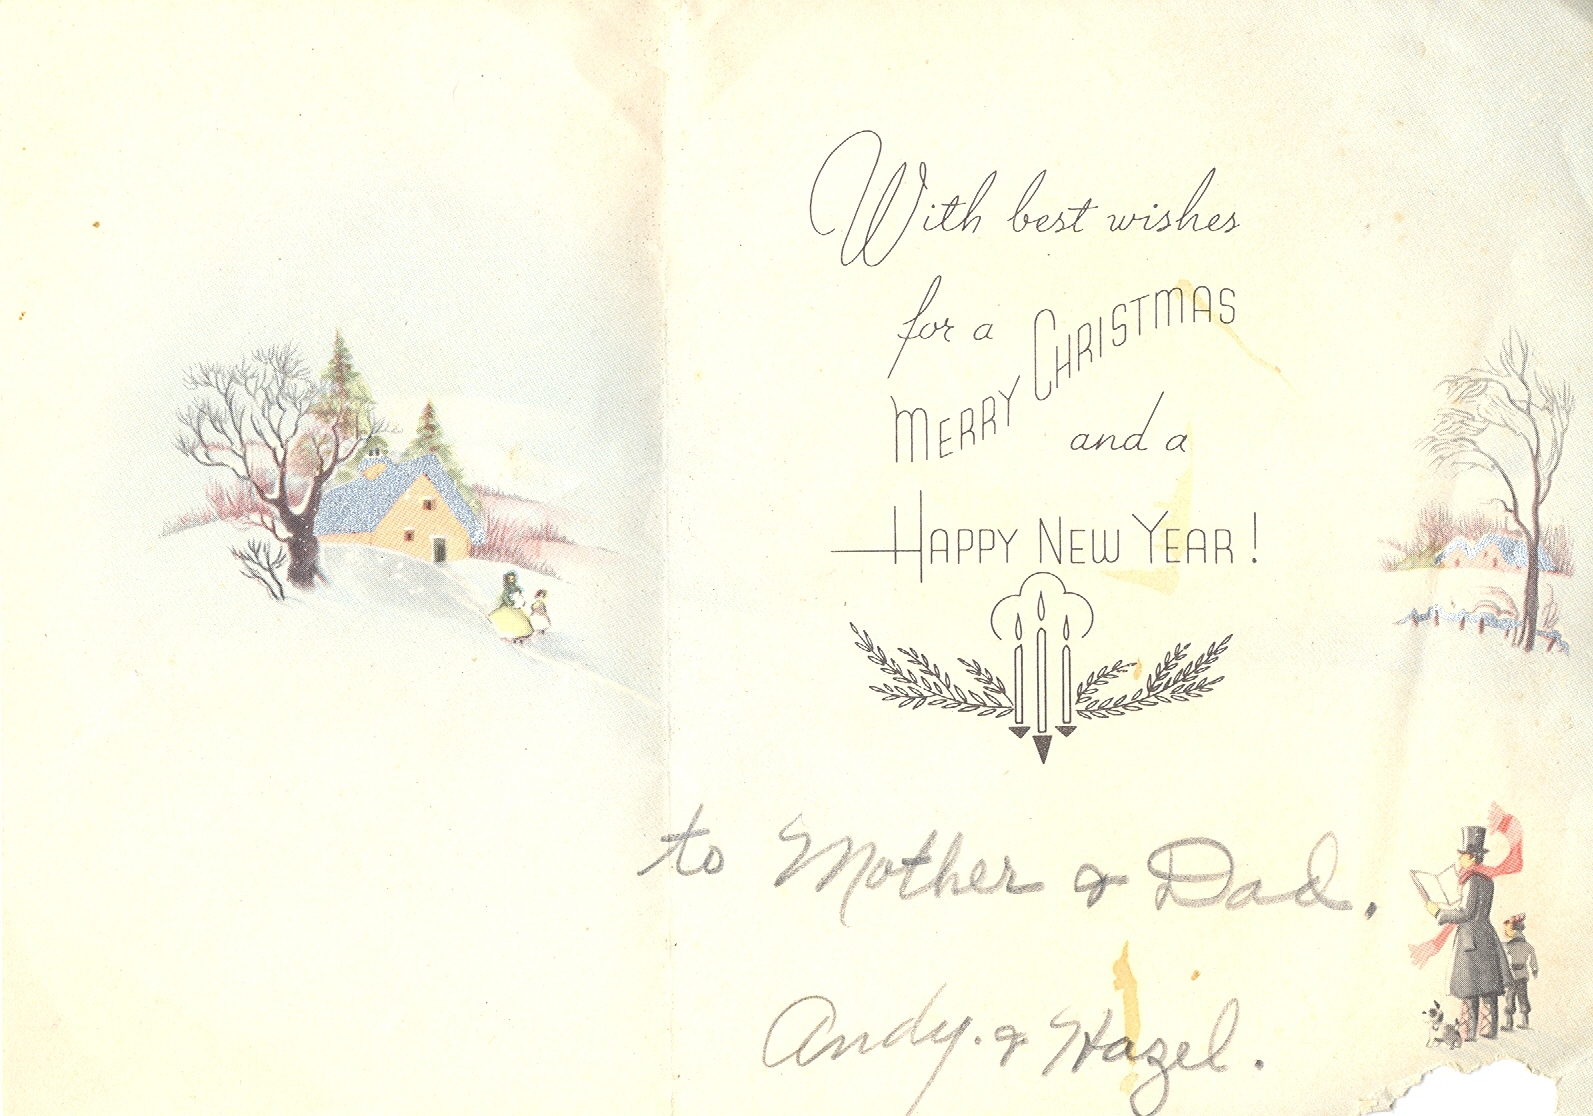 With best wishes
for a
MERRY CHRISTMAS
and a
HAPPY NEW YEAR!
to Mother & Dad.
Andy. & Hazel.